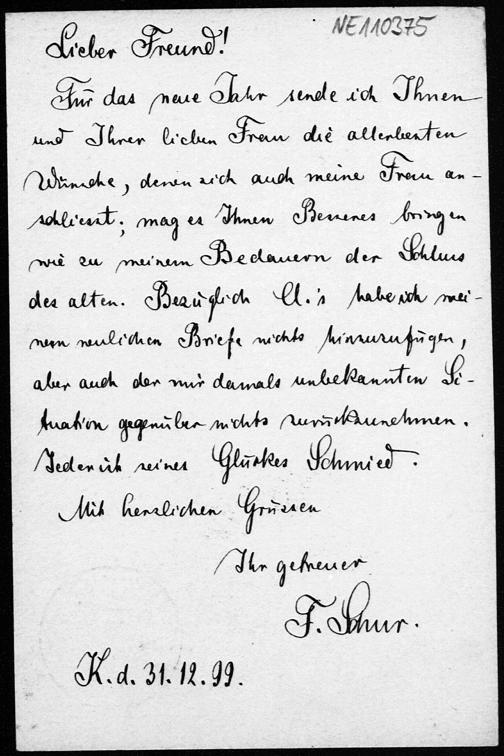 NE110375
Lieber Freund!
Für das neue Jahr sende ich Ihnen
und Ihrer lieben Frau die allerbesten
Wünsche, denen sich auch meine Frau an-
schliesst; mag es Ihnen Besseres bringen
wie zu meinem Bedauern der Schluss
des alten. Bezüglich U.'s habe ich mei-
nem neulichen Briefe nichts hinzuzufügen,
aber auch der mir damals unbekannten Si-
tuation gegenüber nichts zurückzunehmen.
Jeder ist seines Glückes Schmied.
Mit herzlichen Grüssen
Ihr getreuer
F. Schur.
K. d. 31.12.99.